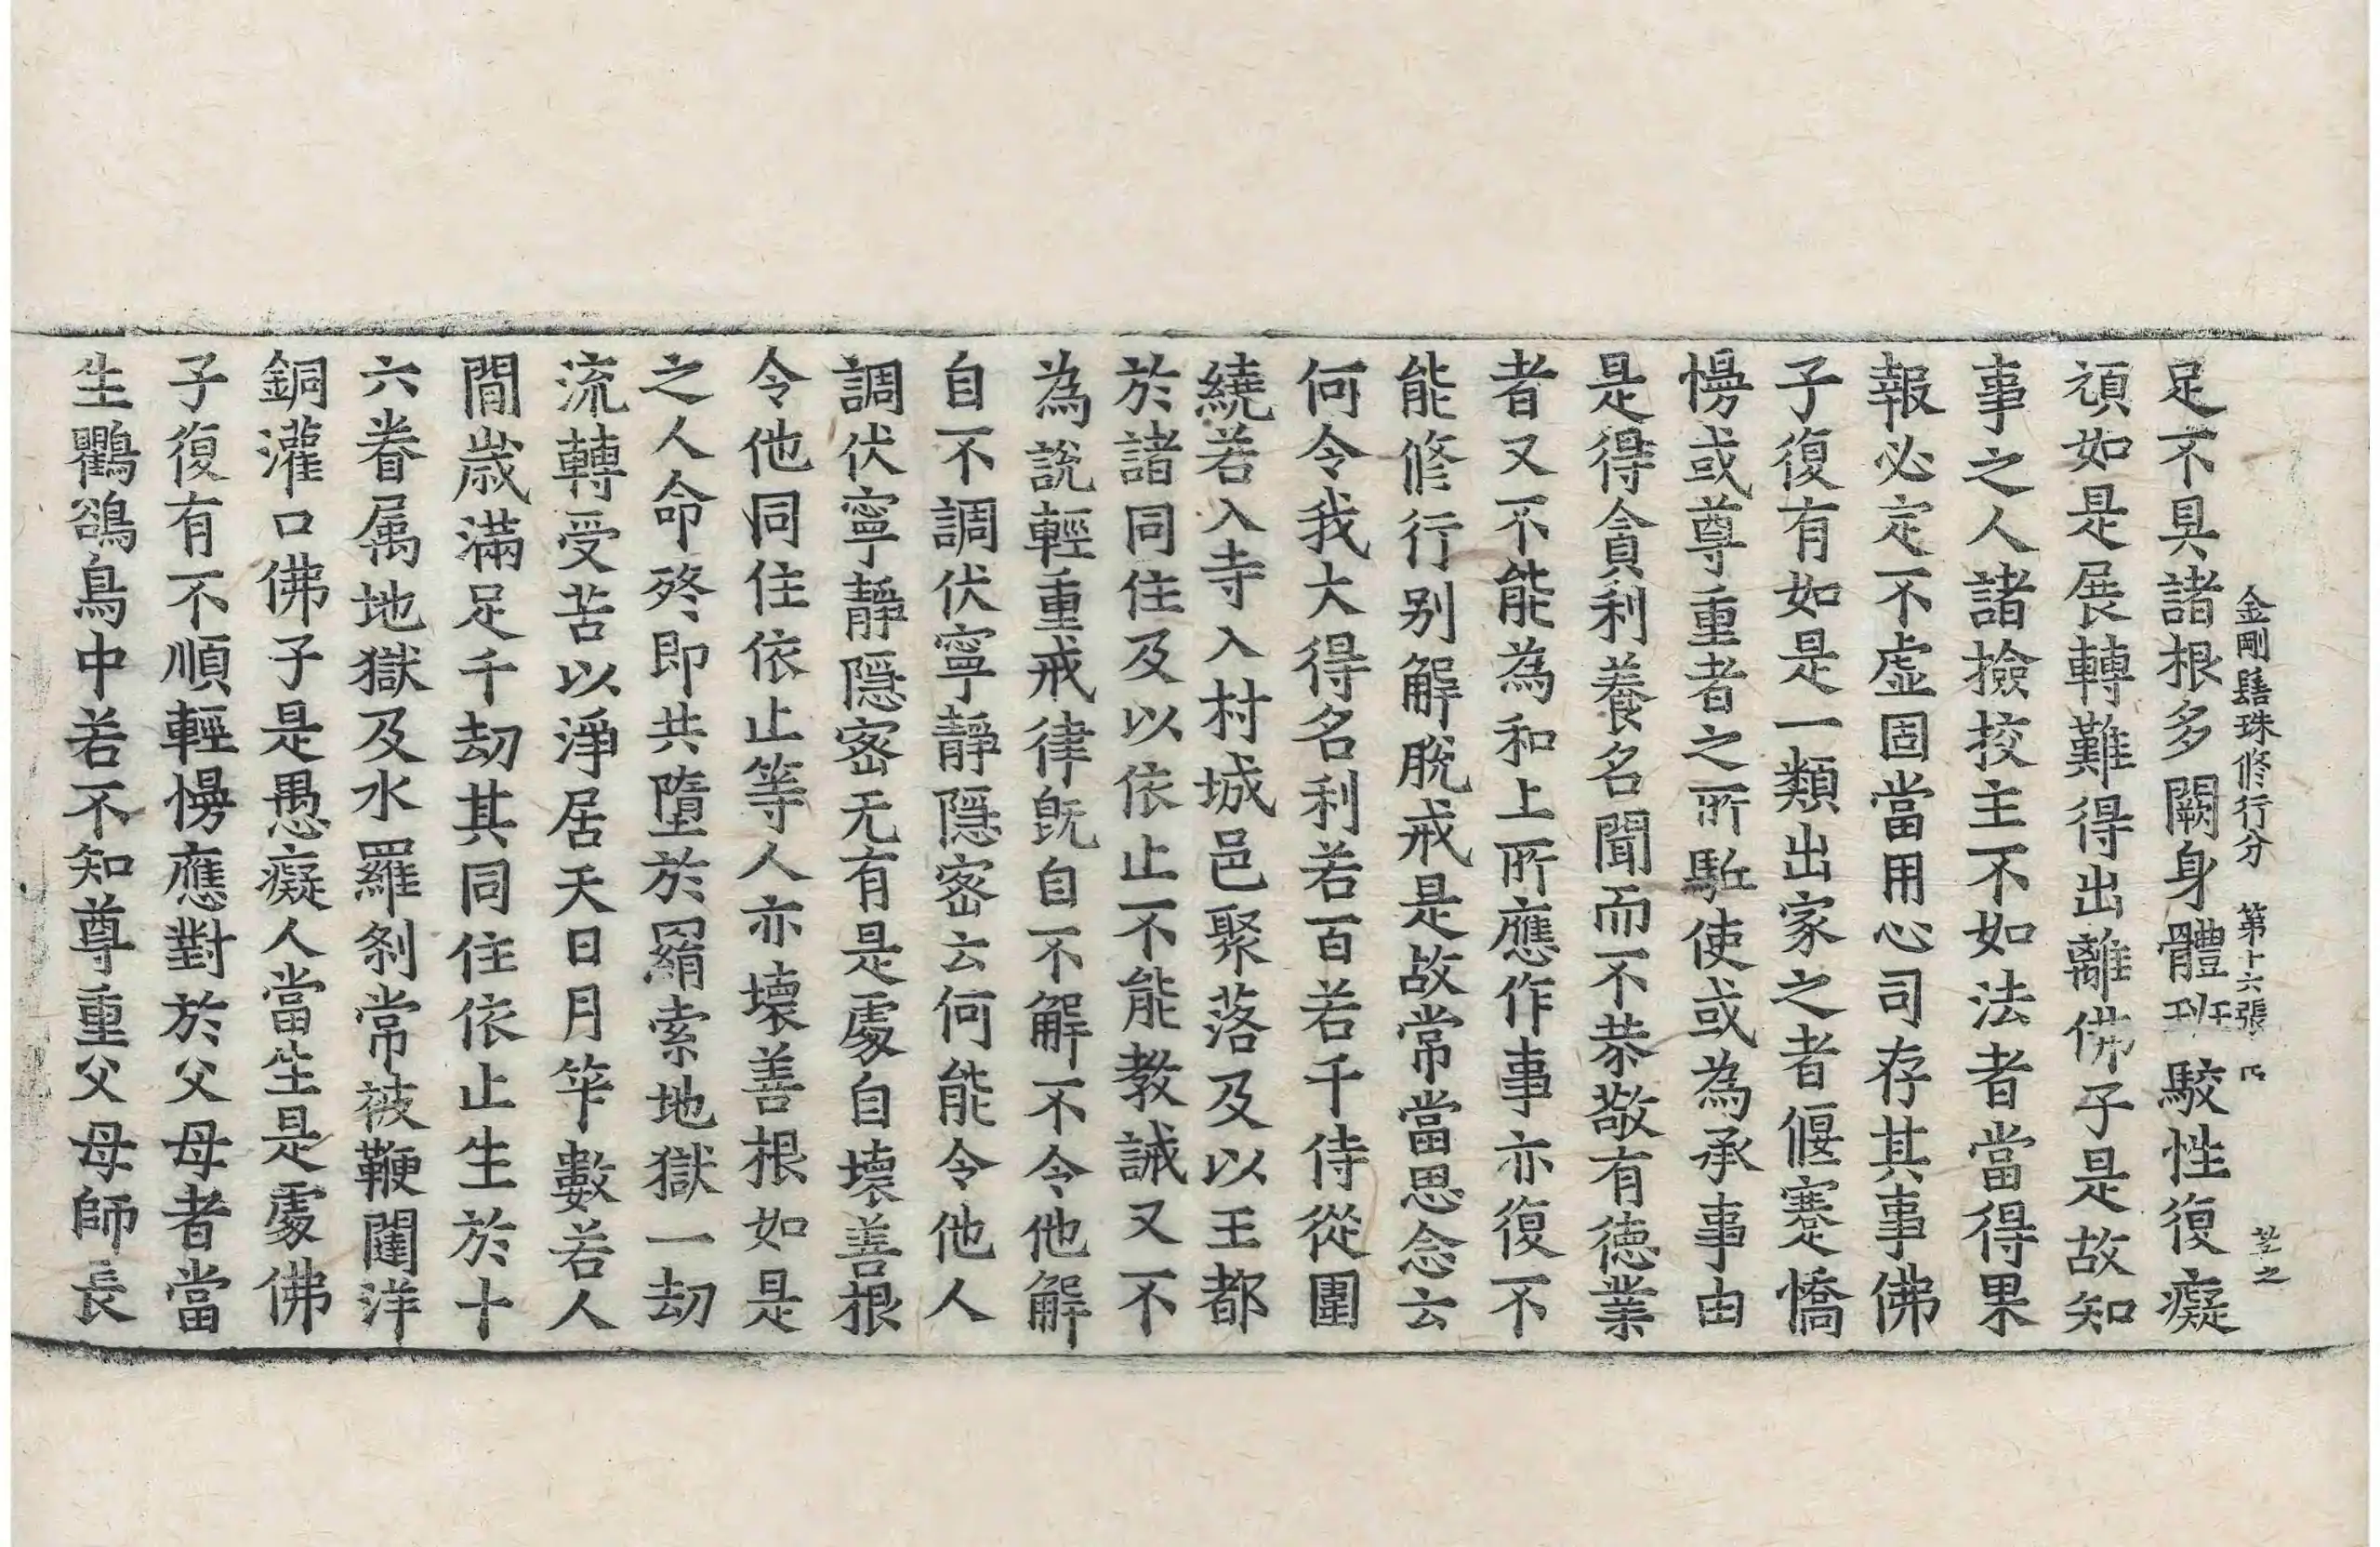 金剛髻珠修行分 第十六張
足不具諸根多闕身體班駮性復癡
頑如是展轉難得出離佛子是故知
事之人諸撿挍主不如法者當得果
報必定不虛固當用心司存其事佛
子復有如是一類出家之者偃蹇憍
慢或尊重者之所駈使或為承事由
是得貪利養名聞而不恭敬有德業
者又不能為和上所應作事亦復不
能修行别解脫戒是故常當思念云
何令我大得名利若百若千侍從圍
繞若入寺入村城邑聚落及以王都
於諸同住及以依止不能教誡又不
為說輕重戒律旣自不解不令他解
自不調伏寧靜隱密云何能令他人
調伏寧靜隱密无有是處自壞善根
令他同住依止等人亦壞善根如是
之人命終即共墮於羂索地獄一劫
流轉受苦以淨居天日月筭數若人
間歲滿足千劫其同住依止生於十
六眷屬地獄及水羅刹常被鞭闥洋
銅灌口佛子是愚癡人當生是處佛
子復有不順輕慢應對於父母者當
生鸜鵒鳥中若不知尊重父母師長